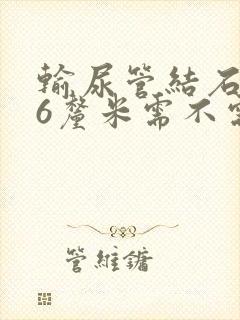 輸尿管結石
6釐米需不需
管維鏞